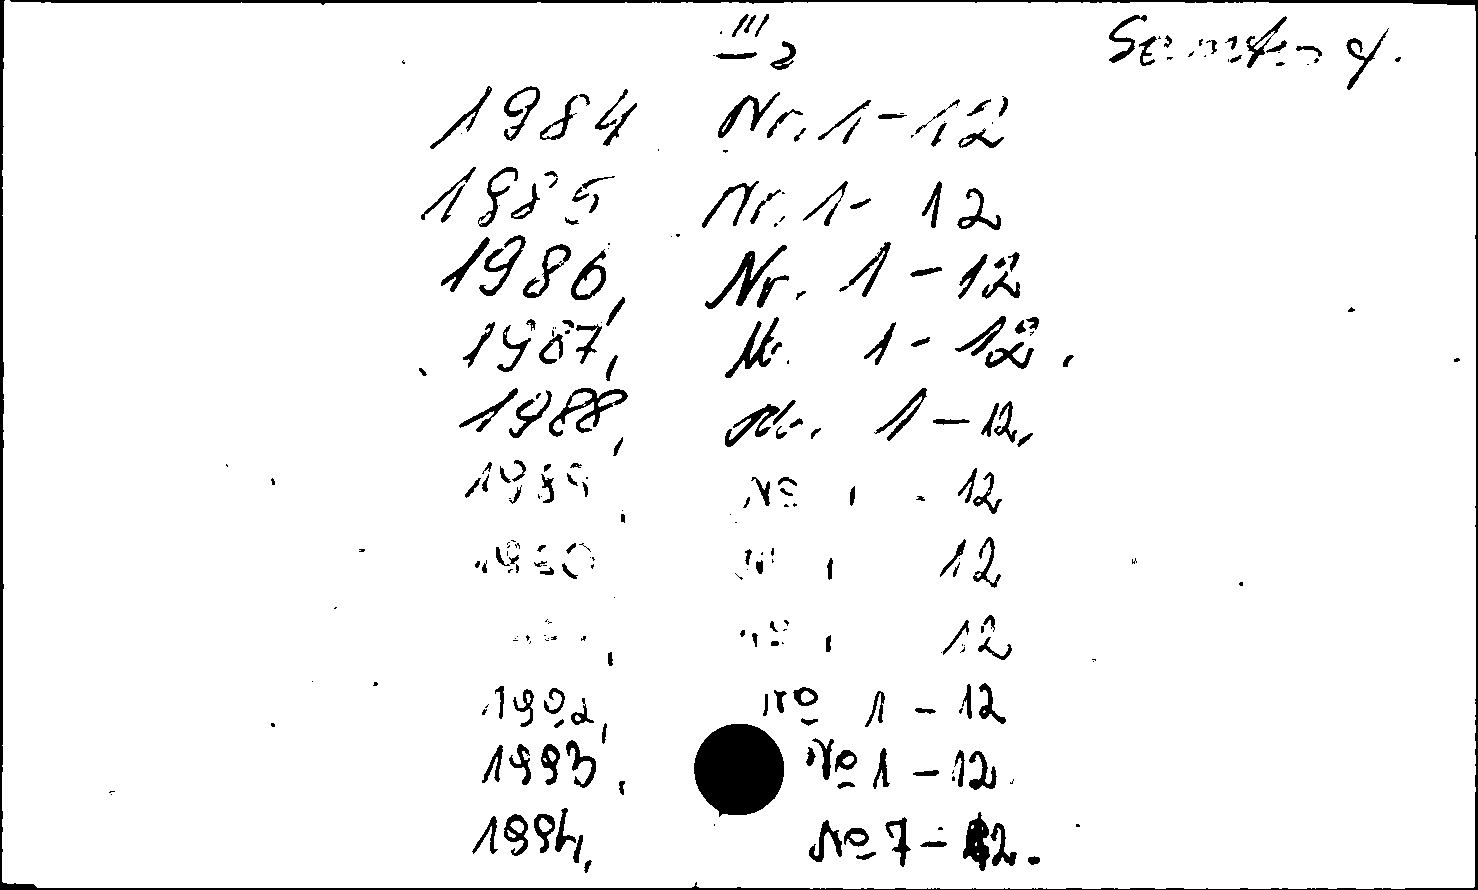 III 2
1984 Nr. 1-12
1985 Nr. 1- 12
1986, Nr. 1-12
1987, Nr. 1-12.
1988, Nr. 1-12.
1989, № 1 - 12
1990 № 1 12
№ 1 12
1992, № 1-12
1993, № 1-12
1994, № 7-12.